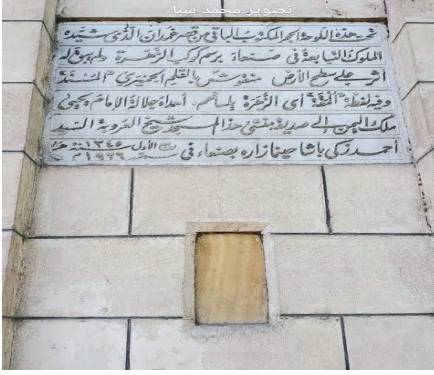 تصوير محمد سبأ
تحت هذه اللوحة الحجر المكتوب الباقي من قصر غمدان الذى شيده
الملوك التبابعة فى صنعاء برسم كوكب الزهرة ولم يبق له
أثر على سطح الأرض منقوش بالقلم الحميرى "المسند"
وفيه لفظة "المقة" أى الزهرة بلسانهم. أهداه جلالة الامام يحيى
ملك اليمن إلى صديقه منشئ هذا المسجد شيخ العروبة السيد
أحمد زكى باشا حينما زاره بصنعاء فى ربيع الأول سنة ١٣٤٥ هـ سنة ١٩٢٦ م